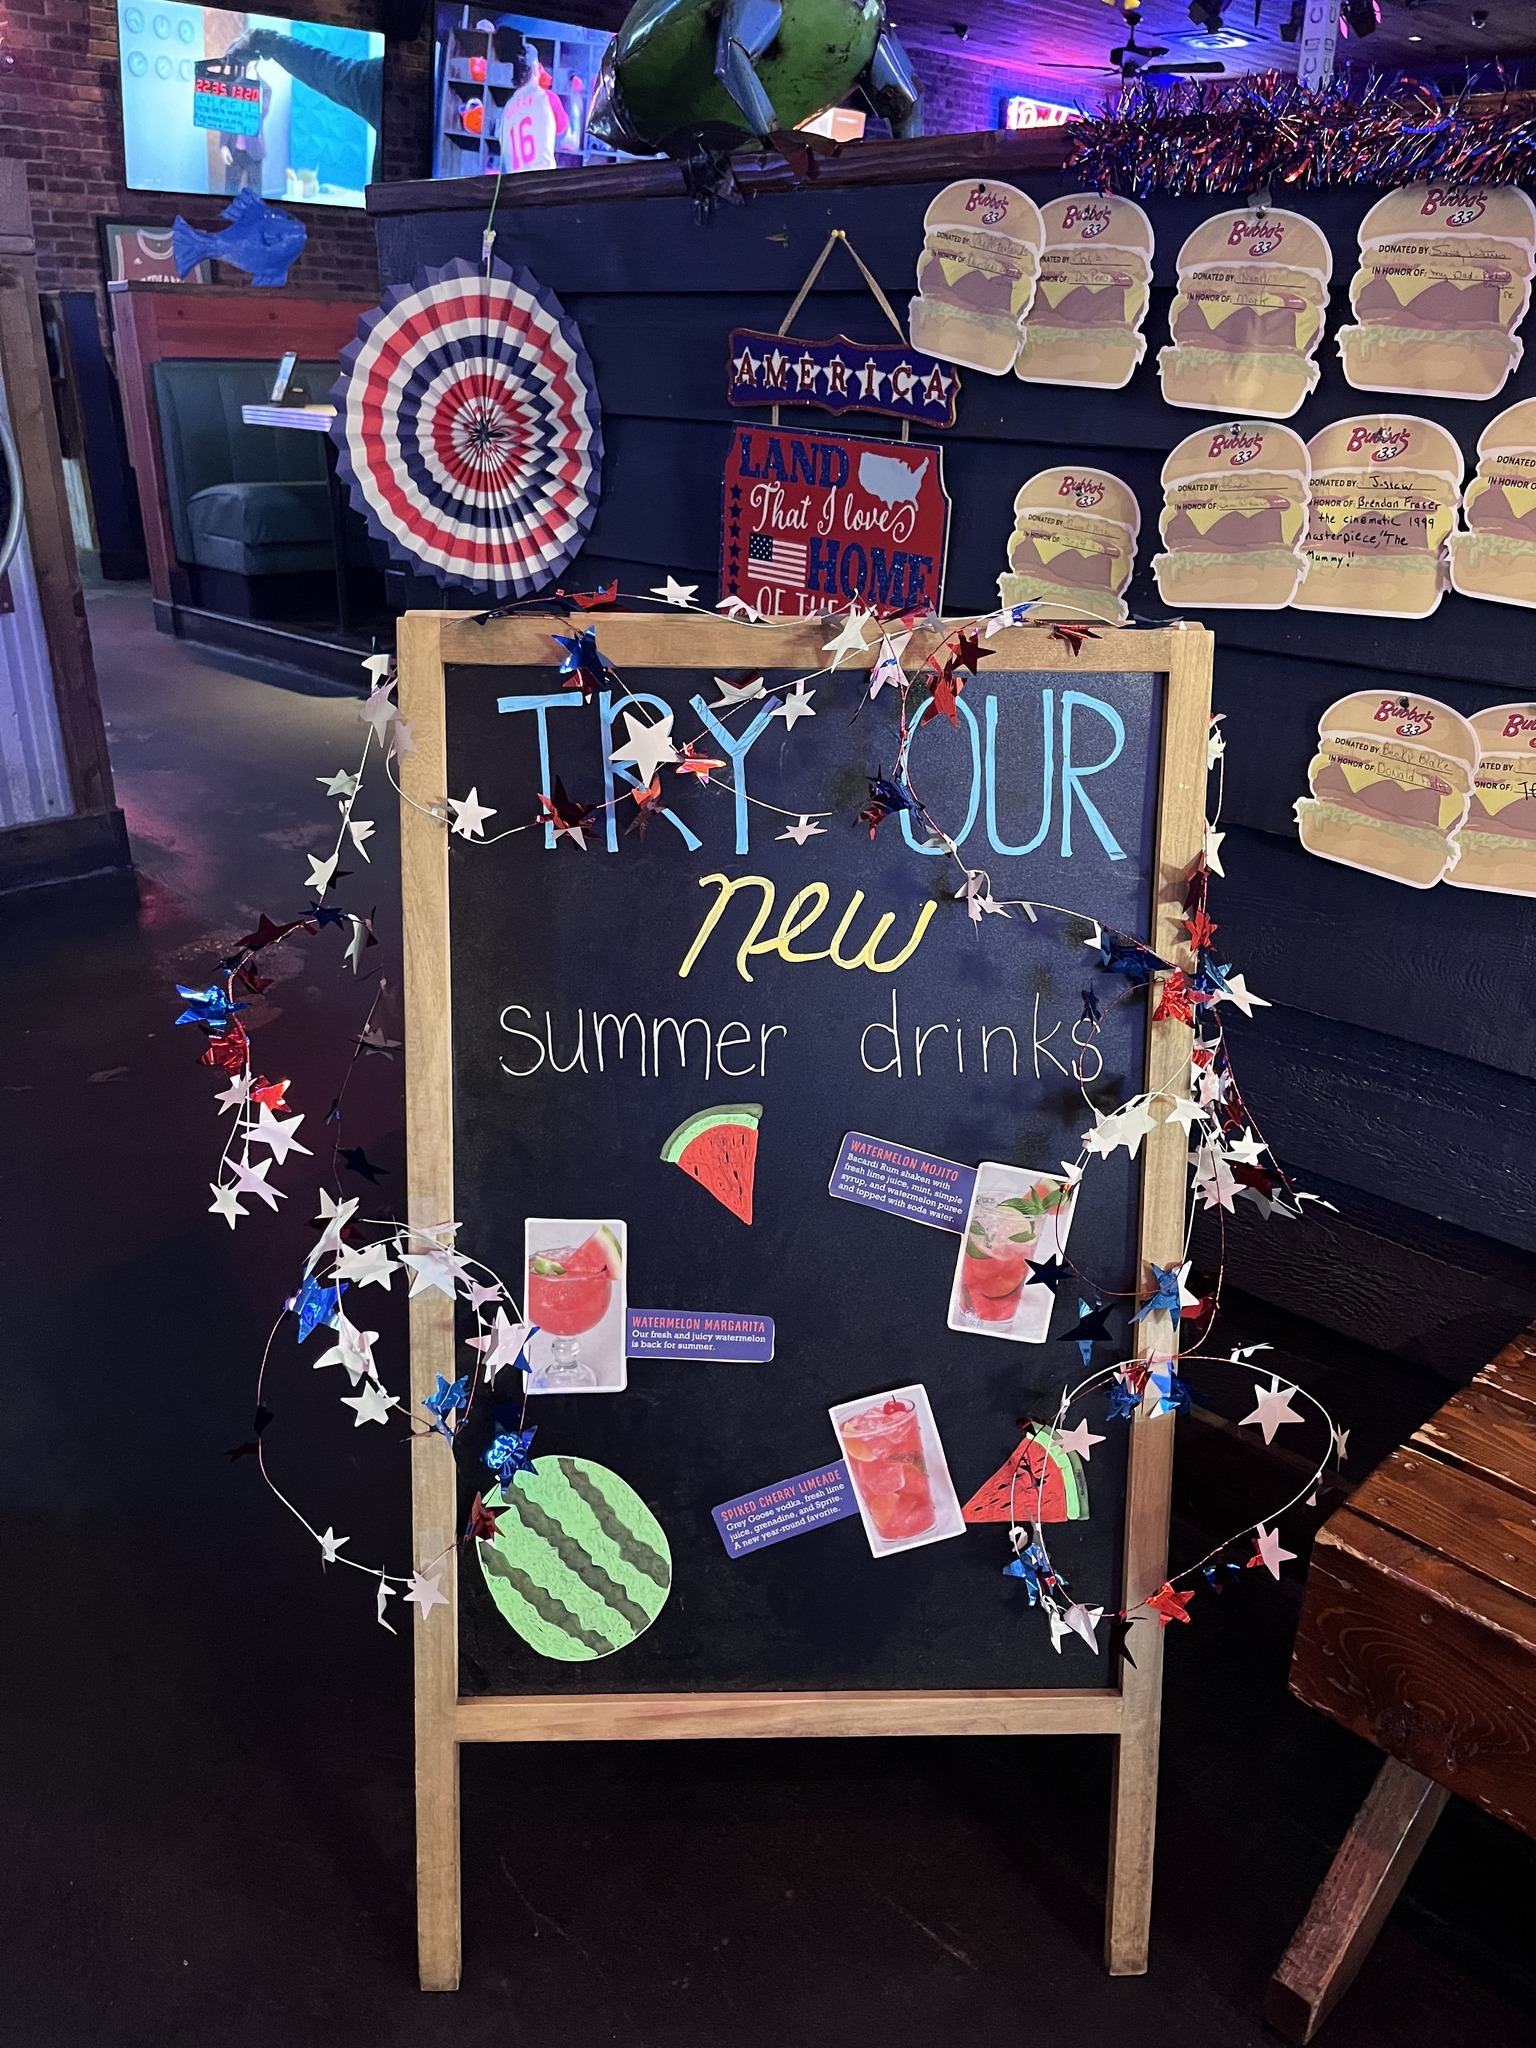 16
INDIANA
AMERICA
LAND
That I love
HOME
OF THE
Bubba's
33
DONATED BY:
IN HONOR OF:
Bubba's
33
DONATED BY: Josie
IN HONOR OF:
Bubba's
33
DONATED BY:
IN HONOR OF: Mark
Bubba's
33
DONATED BY:
IN HONOR OF: my Dad
Bubba's
33
DONATED BY:
IN HONOR OF:
Bubba's
33
DONATED BY:
IN HONOR OF:
Bubba's
33
DONATED BY: J-Slaw
HONOR OF: Brendan Fraser
the cinematic 1999
masterpiece, "The
Mummy!!
DONATED
IN HONOR O
Bubba's
33
DONATED BY: Becky Blake
IN HONOR OF: Donald
Bub
33
ATED BY:
ONOR OF:
TRY OUR
new
summer drinks
WATERMELON MOJITO
Bacardi Rum shaken with
fresh lime juice, mint, simple
syrup, and watermelon puree
and topped with soda water.
WATERMELON MARGARITA
Our fresh and juicy watermelon
is back for summer.
SPIKED CHERRY LIMEADE
Grey Goose vodka, fresh lime
juice, grenadine, and Sprite.
A new year-round favorite.